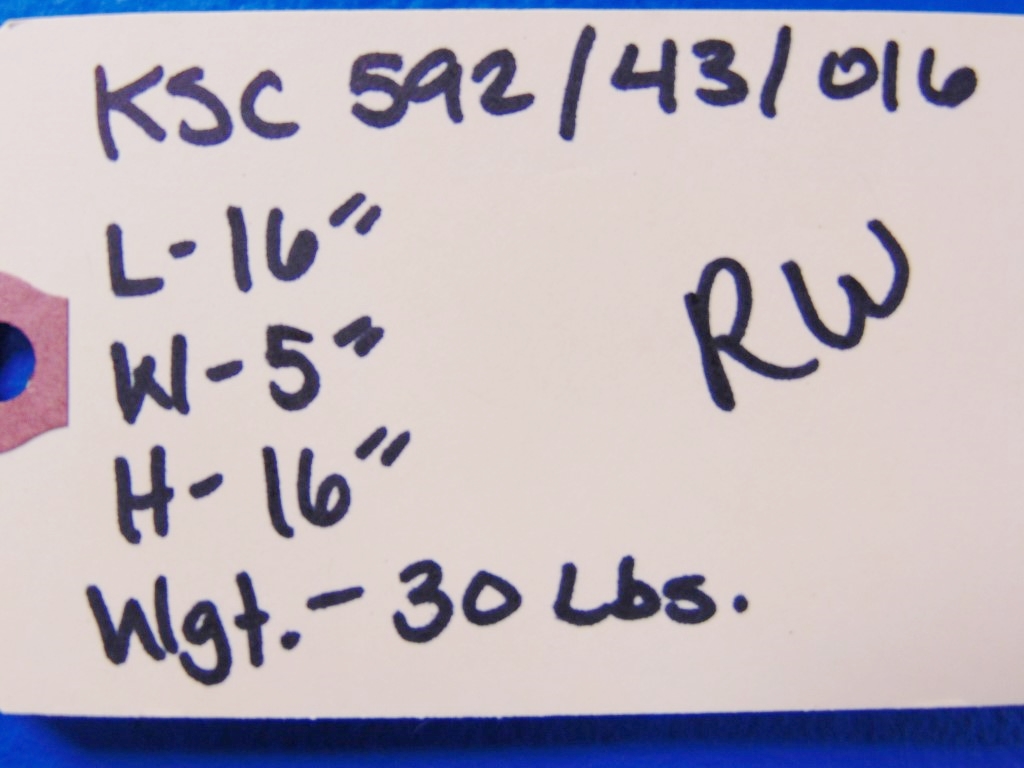 KSC 592/43/016
L-16"
W-5"
RW
H-16"
Wgt.-30 Lbs.